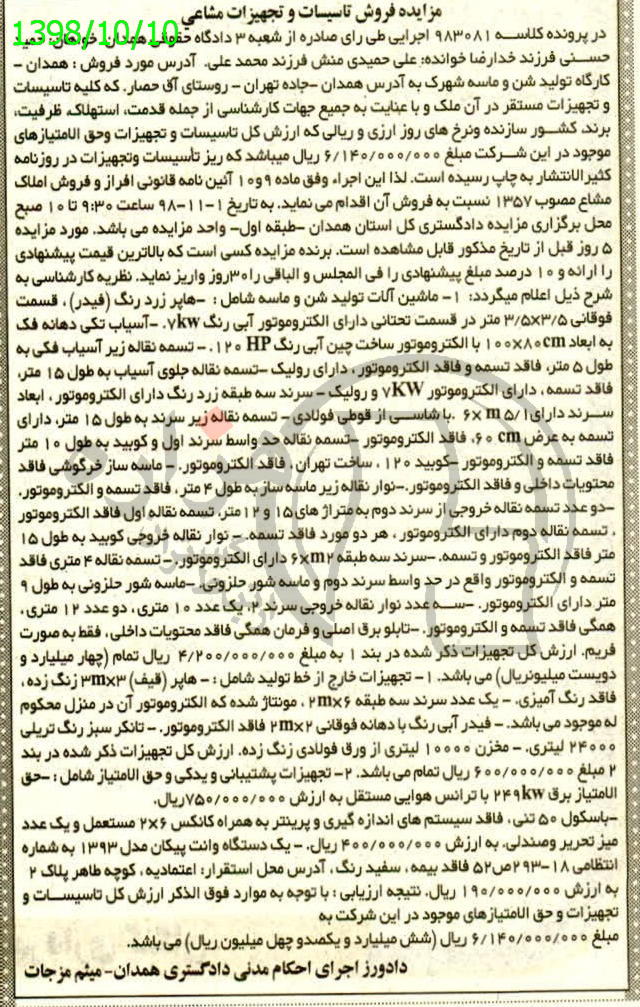 مزایده فروش تاسیسات و تجهیزات مشاعی
1398/10/10
در پرونده کلاسه ۹۸۳۰۸۱ اجرایی طی رای صادره از شعبه ۳ دادگاه حقوقی همدان. خواهان: حمید
حسنی فرزند خدارضا خوانده: علی حمیدی منش فرزند محمد علی. آدرس مورد فروش : همدان -
کارگاه تولید شن و ماسه شهرک به آدرس همدان -جاده تهران - روستای آق حصار. که کلیه تاسیسات
و تجهیزات مستقر در آن ملک و با عنایت به جمیع جهات کارشناسی از جمله قدمت، استهلاک، ظرفیت،
برند، کشور سازنده ونرخ های روز ارزی و ریالی که ارزش کل تاسیسات و تجهیزات وحق الامتیازهای
موجود در این شرکت مبلغ ۶/۱۴۰/۰۰۰/۰۰۰ ریال میباشد که ریز تأسیسات وتجهیزات در روزنامه
کثیرالانتشار به چاپ رسیده است. لذا این اجراء وفق ماده ۹ و۱۰ آئین نامه قانونی افراز و فروش املاک
مشاع مصوب ۱۳۵۷ نسبت به فروش آن اقدام می نماید. به تاریخ ۱-۱۱-۹۸ ساعت ۹:۳۰ تا ۱۰ صبح
محل برگزاری مزایده دادگستری کل استان همدان -طبقه اول- واحد مزایده می باشد. مورد مزایده
۵ روز قبل از تاریخ مذکور قابل مشاهده است. برنده مزایده کسی است که بالاترین قیمت پیشنهادی
را ارائه و ۱۰ درصد مبلغ پیشنهادی را فی المجلس و الباقی را۳۰روز واریز نماید. نظریه کارشناسی به
شرح ذیل اعلام میگردد: ۱- ماشین آلات تولید شن و ماسه شامل : -هاپر زرد رنگ (فیدر) ، قسمت
فوقانی ۳/۵×۳/۵ متر در قسمت تحتانی دارای الکتروموتور آبی رنگ ۷kw. -آسیاب تکی دهانه فک
به ابعاد ۱۰۰×۸۰cm با الکتروموتور ساخت چین آبی رنگ ۱۲۰ HP .- تسمه نقاله زیر آسیاب فکی به
طول ۵ متر، فاقد تسمه و فاقد الکتروموتور ، دارای رولیک -تسمه نقاله جلوی آسیاب به طول ۱۵ متر،
فاقد تسمه ، دارای الکتروموتور ۷KW و رولیک - سرند سه طبقه زرد رنگ دارای الکتروموتور ، ابعاد
سرند دارای۶× m ۵/۱ .با شاسی از قوطی فولادی - تسمه نقاله زیر سرند به طول ۱۵ متر، دارای
تسمه به عرض ۶۰ cm، فاقد الکتروموتور -تسمه نقاله حد واسط سرند اول و کوبید به طول ۱۰ متر
فاقد تسمه و الکتروموتور -کوبید ۱۲۰ ، ساخت تهران ، فاقد الکتروموتور. - ماسه ساز خرگوشی فاقد
محتویات داخلی و فاقد الکتروموتور.-نوار نقاله زیر ماسه ساز به طول ۴ متر ، فاقد تسمه و الکتروموتور.
-دو عدد تسمه نقاله خروجی از سرند دوم به متراژ های ۱۵ و ۱۲متر، تسمه نقاله اول فاقد الکتروموتور
، تسمه نقاله دوم دارای الکتروموتور ، هر دو مورد فاقد تسمه. - نوار نقاله خروجی کوبید به طول ۱۵
متر فاقد الکتروموتور و تسمه. -سرند سه طبقه ۶×m۲ دارای الکتروموتور. - تسمه نقاله ۴ متری فاقد
تسمه و الکتروموتور واقع در حد واسط سرند دوم و ماسه شور حلزونی. -ماسه شور حلزونی به طول ۹
متر دارای الکتروموتور. -سه عدد نوار نقاله خروجی سرند ۲، یک عدد ۱۰ متری ، دو عدد ۱۲ متری ،
همگی فاقد تسمه و الکتروموتور. -تابلو برق اصلی و فرمان همگی فاقد محتویات داخلی ، فقط به صورت
فریم. ارزش کل تجهیزات ذکر شده در بند ۱ به مبلغ ۴/۲۰۰/۰۰۰/۰۰۰ ریال تمام (چهار میلیارد و
دویست میلیونریال) می باشد. ۱- تجهیزات خارج از خط تولید شامل : - هاپر (قیف) ۳m×۳ زنگ زده ،
فاقد رنگ آمیزی. - یک عدد سرند سه طبقه ۲m×۶ ، مونتاژ شده که الکتروموتور آن در منزل محکوم
له موجود می باشد. - فیدر آبی رنگ با دهانه فوقانی ۲m×۲ فاقد الکتروموتور. - تانکر سبز رنگ تریلی
۲۴۰۰۰ لیتری. - مخزن ۱۰۰۰۰ لیتری از ورق فولادی زنگ زده. ارزش کل تجهیزات ذکر شده در بند
۲ مبلغ ۶۰۰/۰۰۰/۰۰۰ ریال تمام می باشد. ۲- تجهیزات پشتیبانی و یدکی و حق الامتیاز شامل : -حق
الامتیاز برق ۲۴۹kw با ترانس هوایی مستقل به ارزش ۷۵۰/۰۰۰/۰۰۰ریال.
-باسکول ۵۰ تنی ، فاقد سیستم های اندازه گیری و پرینتر به همراه کانکس ۶×۲ مستعمل و یک عدد
میز تحریر وصندلی. به ارزش ۴۰۰/۰۰۰/۰۰۰ ریال. - یک دستگاه وانت پیکان مدل ۱۳۹۳ به شماره
انتظامی ۱۸-۲۹۳ص۵۲ فاقد بیمه ، سفید رنگ ، آدرس محل استقرار: اعتمادیه ، کوچه طاهر پلاک ۲
به ارزش ۱۹۰/۰۰۰/۰۰۰ ریال. نتیجه ارزیابی : با توجه به موارد فوق الذکر ارزش کل تاسیسات و
تجهیزات و حق الامتیازهای موجود در این شرکت به
مبلغ ۶/۱۴۰/۰۰۰/۰۰۰ ریال (شش میلیارد و یکصدو چهل میلیون ریال) می باشد.
دادورز اجرای احکام مدنی دادگستری همدان- میثم مزجات